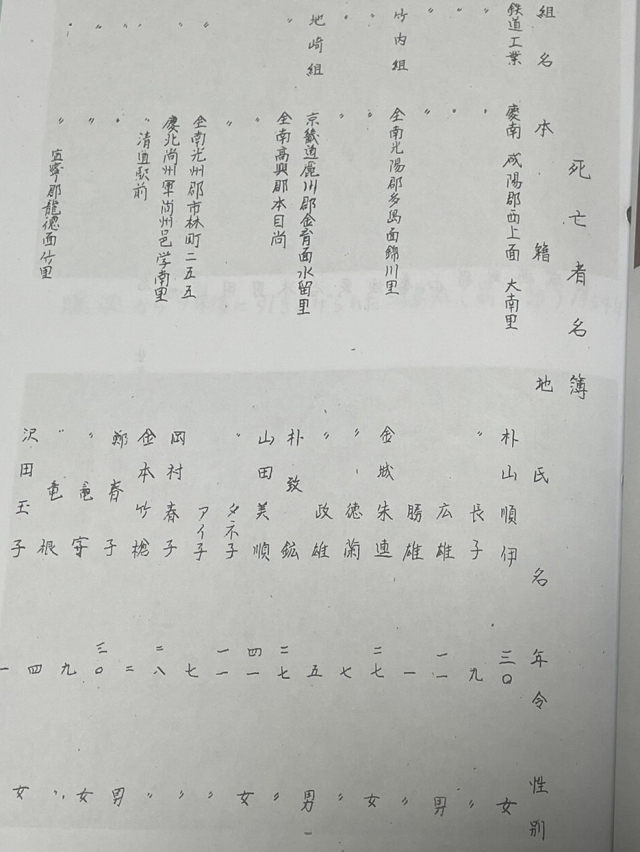 死亡者名簿
組名 本籍地 氏名 年令 性別
鉄道工業 慶南 咸陽郡西上面 大南里 朴山順伊 三〇 女
〃 〃 〃 長子 九 〃
〃 〃 広雄 一一 男
〃 〃 勝雄 一 〃
竹内組 全南光陽郡多鴨面錦川里 金城朱連 二七 女
〃 〃 〃 徳蘭 七 〃
〃 〃 〃 政雄 五 男
地崎組 全南高興郡本目尚 朴致鉱 二七 〃
京畿道 川郡金育面水留里 山田美順 四一 女
〃 〃 〃 タネ子 一一 〃
〃 〃 アイ子 七 〃
〃 全南光州郡市林町二五五 岡村春子
〃 慶北尚州軍尚州邑 学南里 金本竹槍 二八 男
〃 〃 清道駅前 鄭春子 三〇 女
〃 〃 〃 竜守 九
〃 〃 〃 竜根 四
〃 〃 宜寧郡龍徳面竹里 沢田玉子 一 女